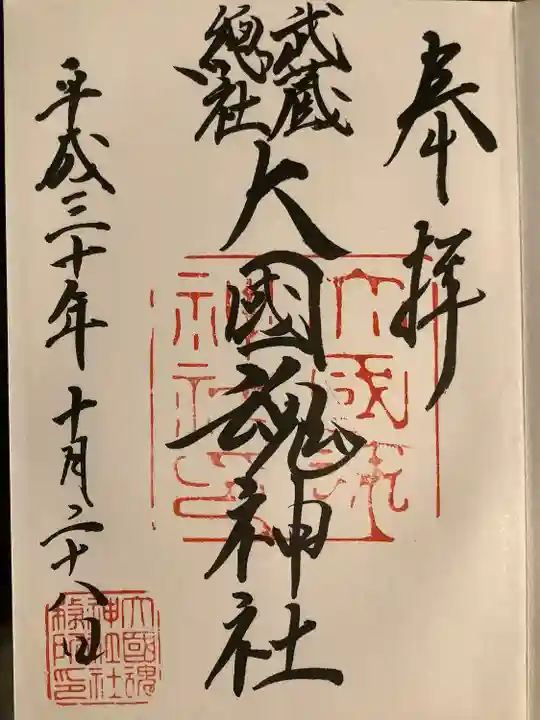 奉拝
武蔵
總社
大國魂神社
平成三十年十月二十八日
大國魂
神社印
大國魂
神社社